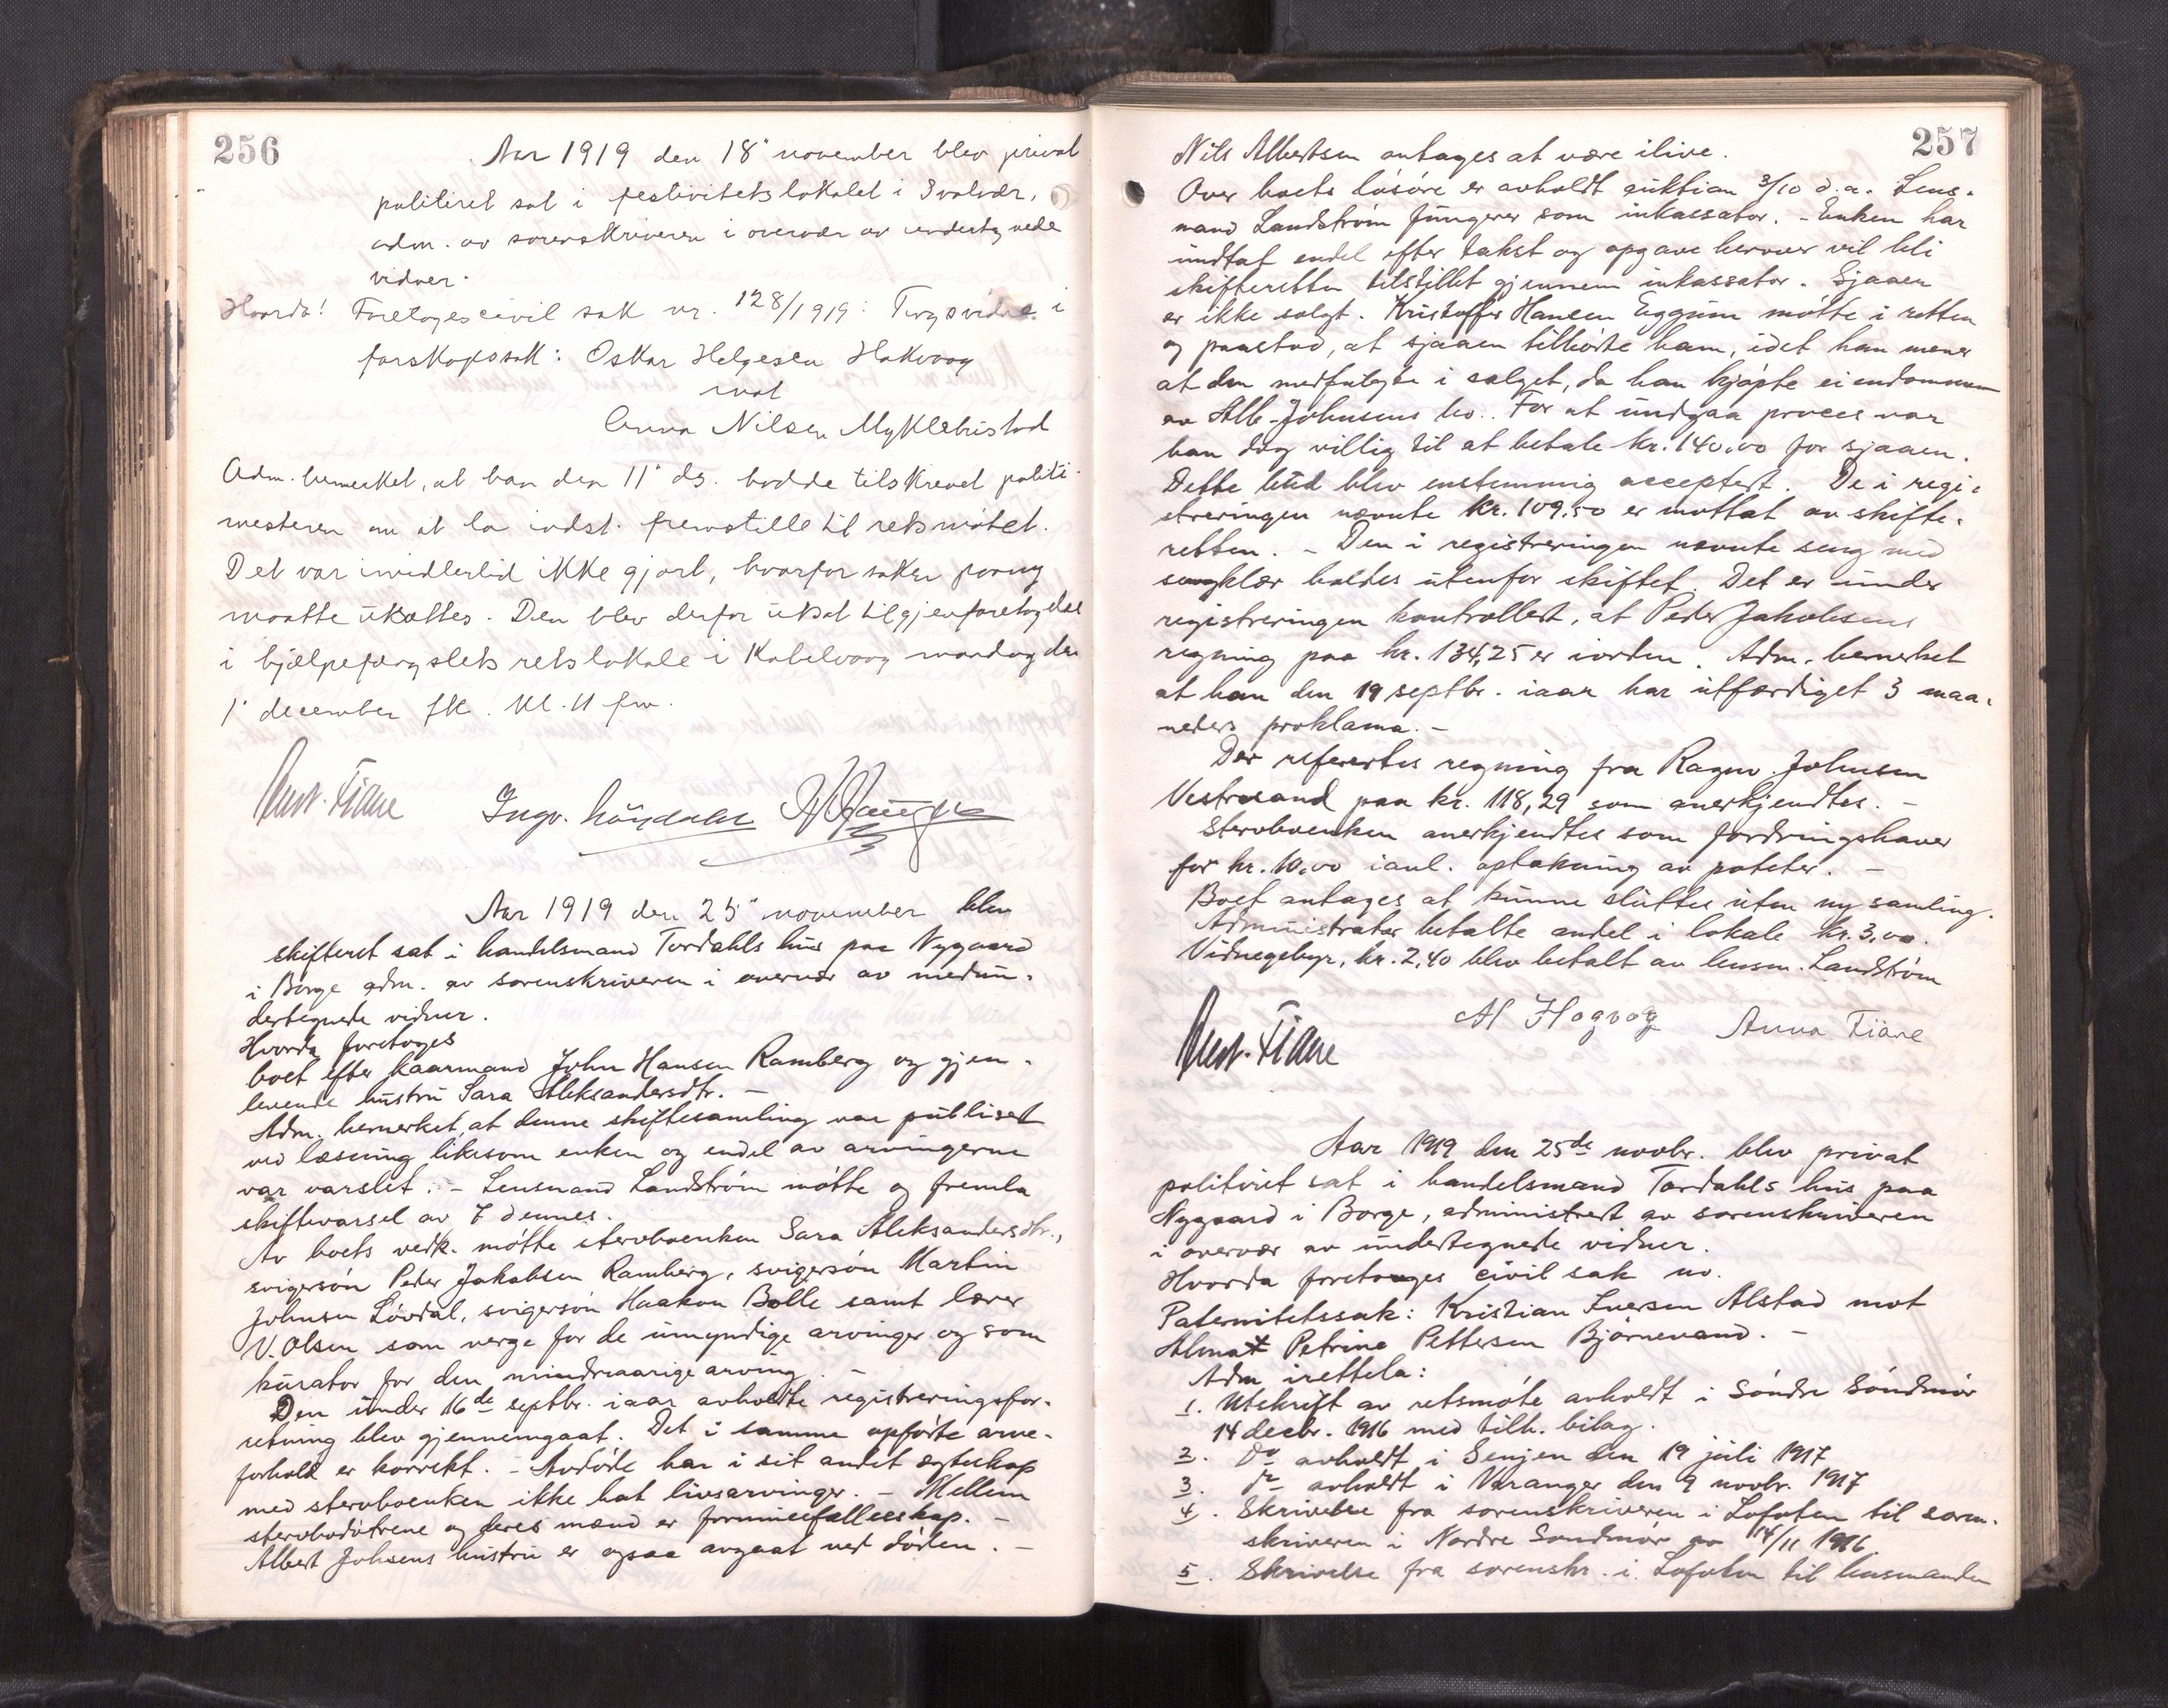 256
Aar 1919 den 18' november blev privat
politiret sat i festivitetslokalet i Svolvær,
adm. av sorenskriveren i overvær av undertegnede
vidner.
Hvorda! Foretoges civil sak nr. 128/1919: Tingsvidne i
farskapssak: Oskar Helgesen Hakvaag
mot
Anna Nilsen Myklebustad
Adm. bemerket, at han den 11' ds. hadde tilskrevet politi-
mesteren om at la indst. fremstille til retsmötet.
Det var imidlertid ikke gjort, hvorfor saken paany
maatte utsættes. Den blev derfor utsat til gjenforetagelse
i hjælpefængslets retslokale i Kabelvaag mandag den
1' december fk. kl. 11 fm.
Aar 1919 den 25' november blev
skifteret sat i handelsmand Tordahls hus paa Nygaard
i Borge adm. av sorenskriveren i overvær av medun-
dertegnede vidner.
Hvorda foretoges
boet efter kaarmand John Hansen Ramberg og gjen-
levende hustru Sara Aleksandersdtr. -
Adm. bemerket, at denne skiftesamling var publisert
ved læsning likesom enken og endel av arvingerne
var varslet. - Lensmand Landström mötte og fremla
skiftevarsel av 7 dennes.
Av boets vedk. mötte stervboenken Sara Aleksandersdtr.,
svigersön Peder Jakobsen Ramberg, svigersön Martin
Johnsen Lövdal, svigersön Haakon Bolle samt lærer
V. Olsen som verge for de umyndige arvinger og som
kurator for den mindreaarige arving. -
Den under 16de septbr. iaar avholdte registreringsfor-
retning blev gjennemgaat. Det i samme opförte arve-
forhold er korrekt. - Avdöde har i sit andet egteskap
med stervboenken ikke hat livsarvinger. - Mellem
stervbodötrene og deres mænd er formuesfællesskap. -
Albert Johsens hustru er ogsaa avgaat ved döden. -
257
Nils Albertsen antages at være ilive.
Over boets lösöre er avholdt auktion 3/10 d.a. Lens-
mand Landström fungerer som inkassator. - Enken har
undtat endel efter takst og opgave herover vil bli
skifteretten tilstillet gjennem inkassator. Sjaaen
er ikke solgt. Kristoffer Hansen Eggum mötte i retten
og paastod, at sjaaen tilhörte ham, idet han mener
at den medfulgte i salget, da han kjöpte eiendommen
av Alb. Johnsens bo. For at undgaa proces var
han dog villig til at betale kr. 140.00 for sjaaen.
Dette bud blev enstemmig acceptert. De i regi-
streringen nævnte kr. 109.50 er mottat av skifte-
retten. - Den i registreringen nævnte seng med
sengklær holdes utenfor skiftet. Det er under
registreringen kontrollert, at Peder Jakobsens
regning paa kr. 134,25 er iorden. Adm. bemerket
at han den 19 septbr. iaar har utfærdiget 3 maa-
neders proklama. -
Der refertes regning fra Ragnv. Johnsen
Vestresand paa kr. 118,29 som anerkjendtes. -
Stervboenken anerkjendtes som fordringshaver
for kr. 10.00 ianl. optakning av poteter. -
Boet antages at kunne sluttes uten ny samling.
Administrator betalte andel i lokale kr. 3,00.
Vidnegebyr, kr. 2,40 blev betalt av lensm. Landström
Anna Fiane
Aar 1919 den 25de novbr. blev privat
politiret sat i handelsmand Tordahls hus paa
Nygaard i Borge, administrert av sorenskriveren
i overvær av undertegnede vidner.
Hvorda foretoges civil sak no.
Paternitetssak: Kristian Iversen Alstad mot
Alma Petrine Pettersen Björnesand. -
Adm irettela:
1. Utskrift av retsmöte avholdt i Söndre Söndmör
14 decbr. 1916 med tilh. bilag.
2. do avholdt i Senjen den 19 juli 1917
3. do avholdt i Varanger den 9 novbr. 1917
4. Skrivelse fra sorenskriveren i Lofoten til soren-
skriveren i Nordre Söndmör av 14/11 1916.
5. Skrivelse fra sorenskr. i Lofoten til lensmanden